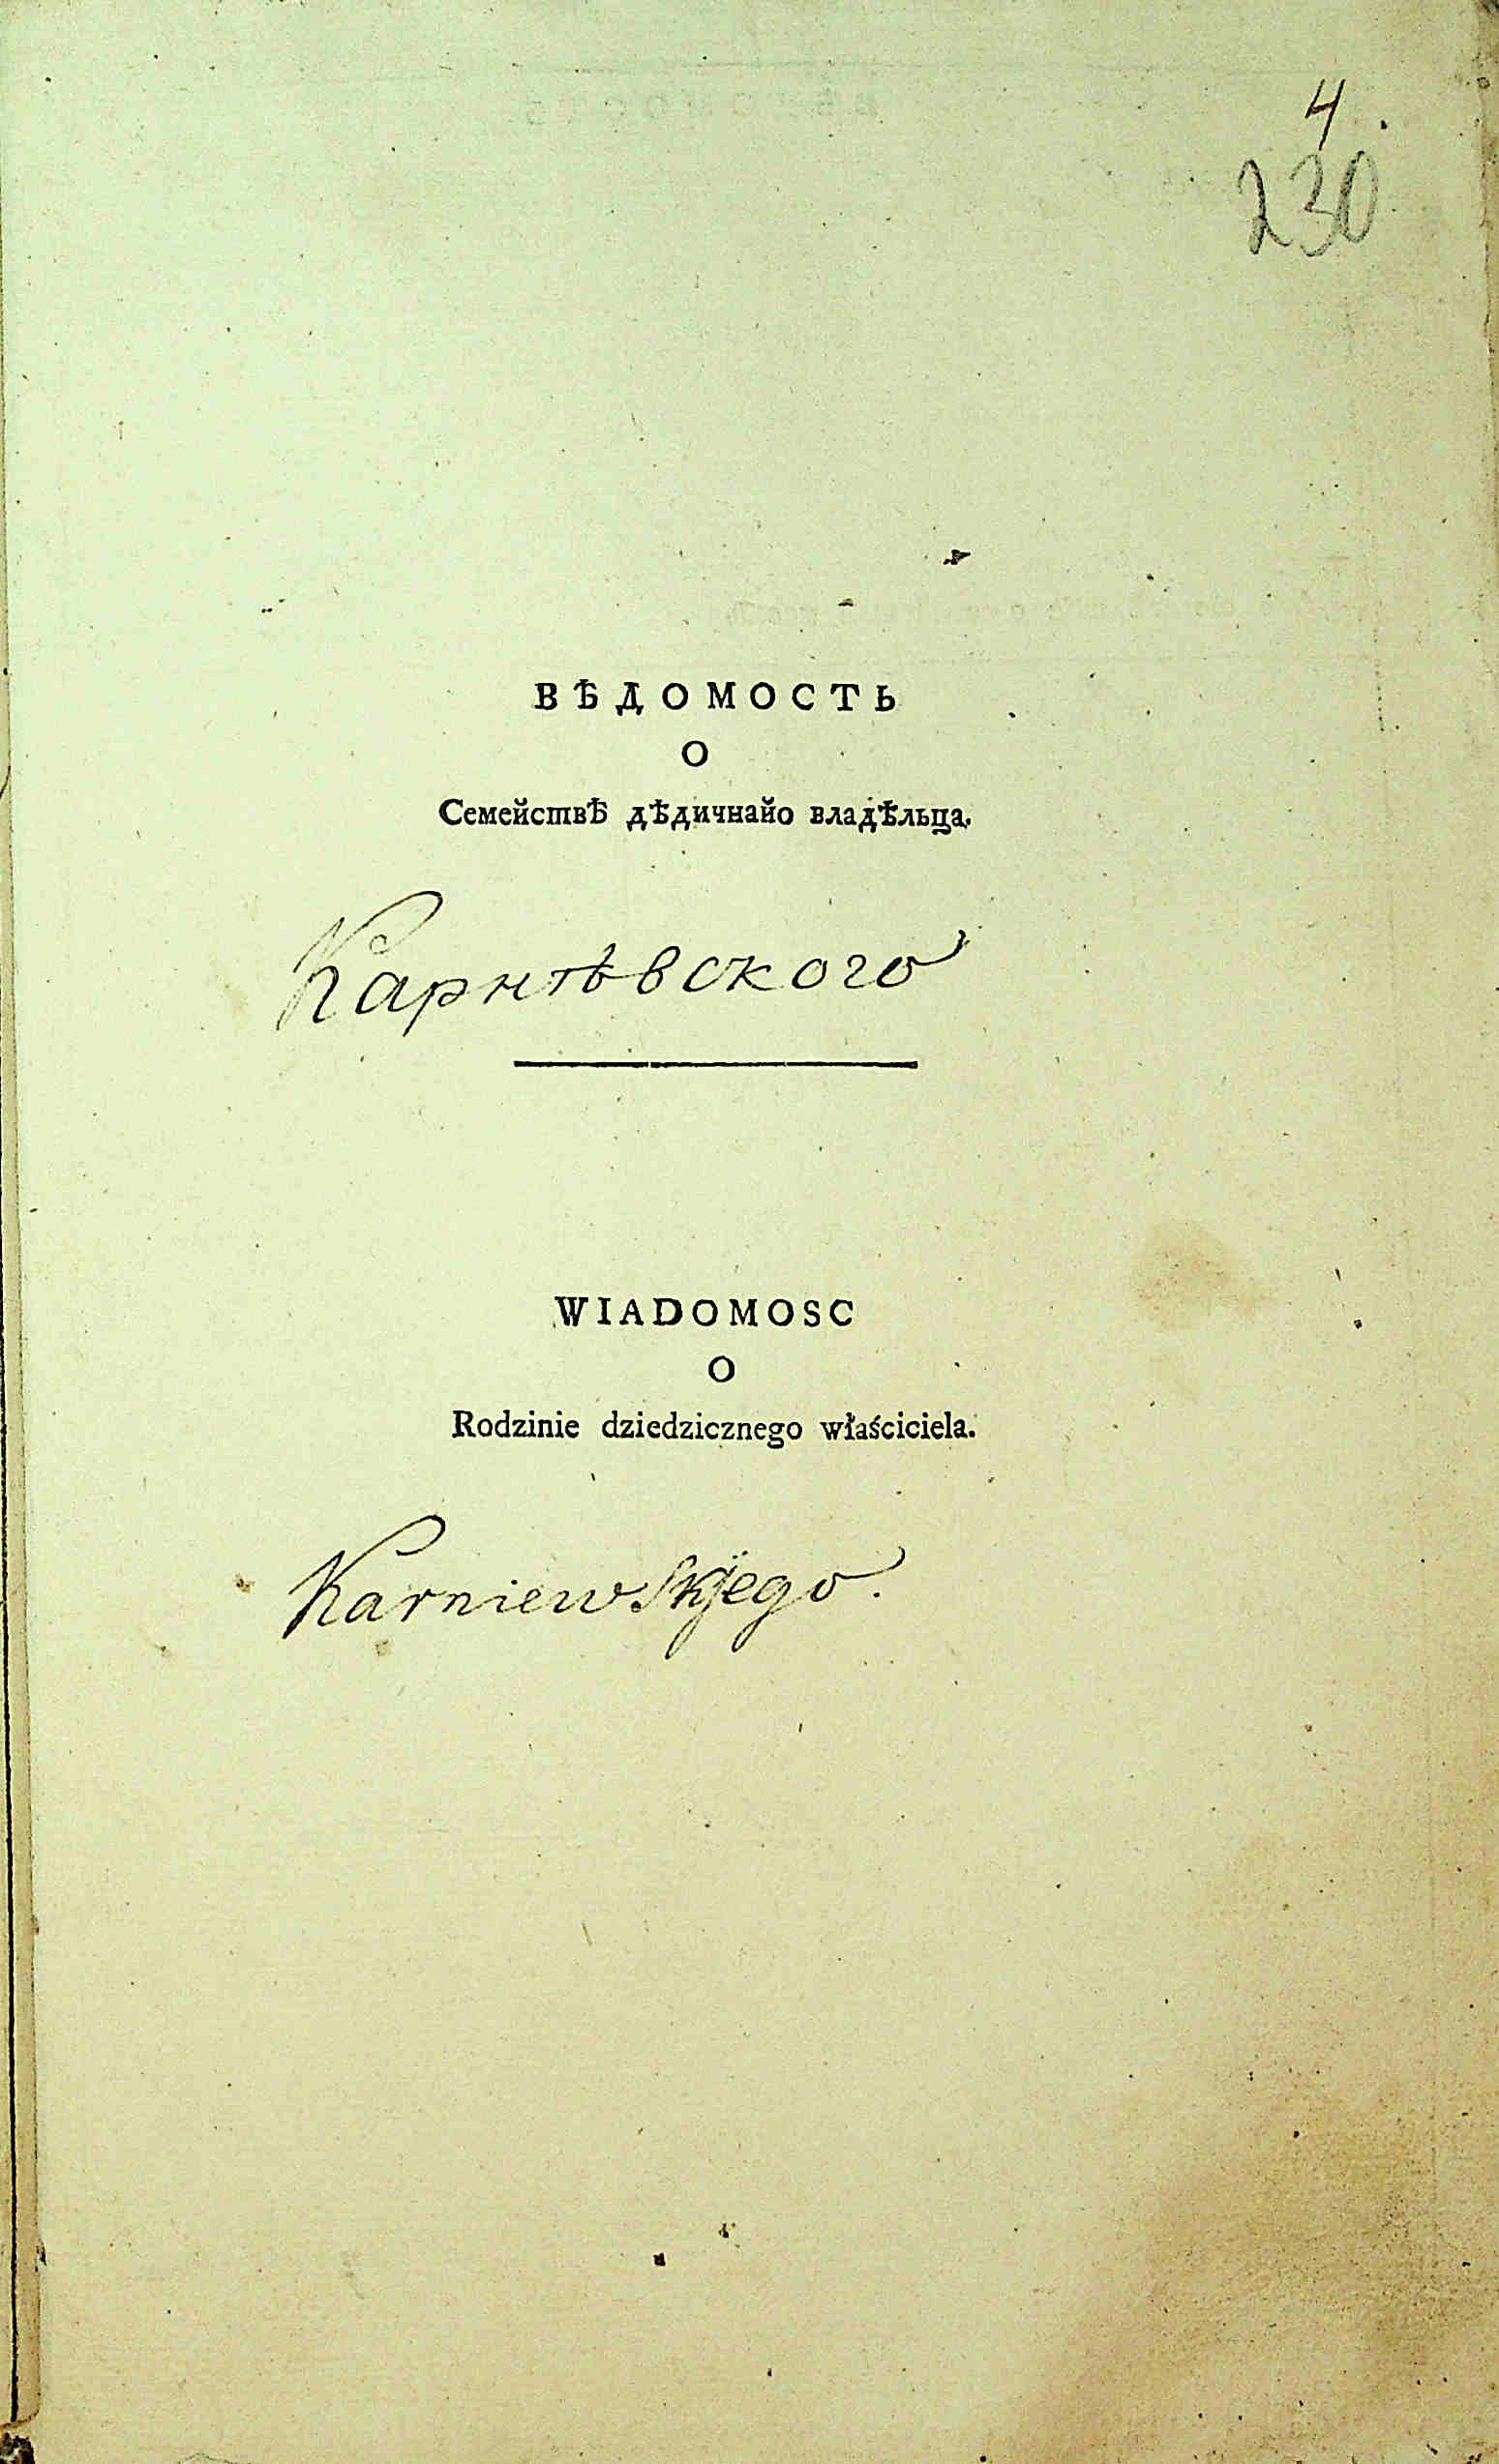 4.
230
ВѢДОМОСТЬ
О
Семействѣ дѣдичнайо владѣльца.
Карнѣвского
WIADOMOSC
O
Rodzinie dziedzicznego właściciela.
Karniewskjego.